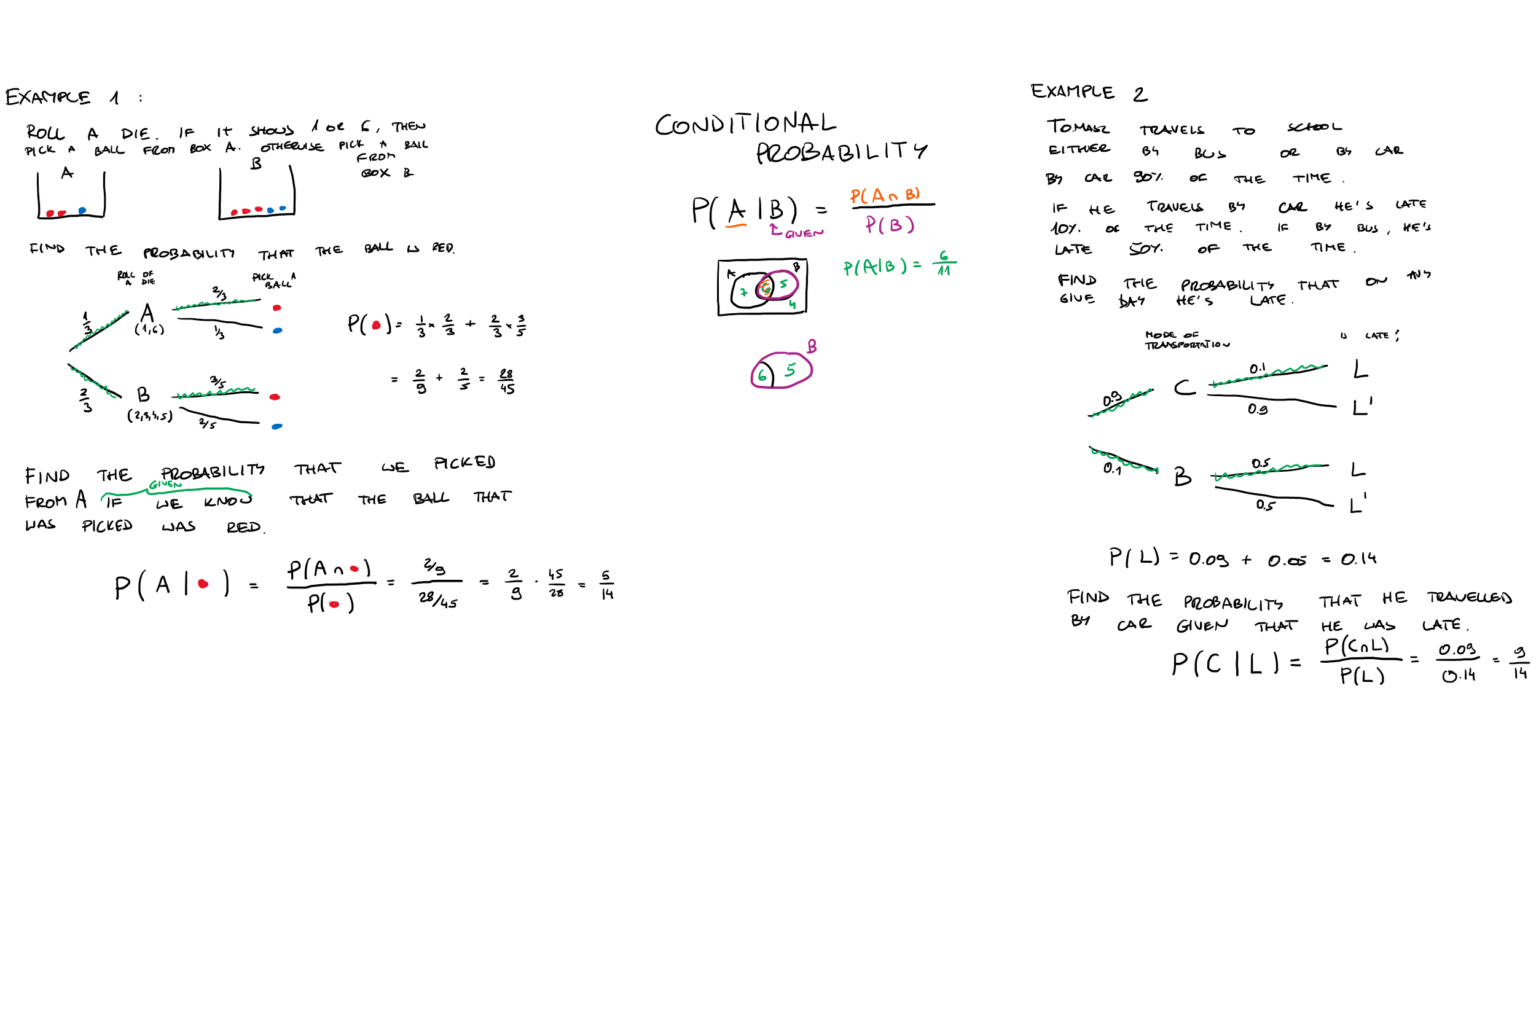 EXAMPLE 1 :
ROLL A DIE. IF IT SHOWS 1 OR 6, THEN
PICK A BALL FROM BOX A. OTHERWISE PICK A BALL
FROM
BOX B
A
B
FIND THE PROBABILITY THAT THE BALL IS RED.
ROLL OF A DIE
PICK A BALL
1/3
A
(1,6)
2/3
1/3
2/3
B
(2,3,4,5)
3/5
2/5
P( ) = 1/3 × 2/3 + 2/3 × 3/5
= 2/9 + 2/5 = 28/45
FIND THE PROBABILITY THAT WE PICKED
GIVEN
FROM A IF WE KNOW THAT THE BALL THAT
WAS PICKED WAS RED.
P( A | ) = P(A ∩ ) / P( ) = 2/9 / 28/45 = 2/9 · 45/28 = 5/14
CONDITIONAL
PROBABILITY
P( A | B ) = P(A ∩ B) / P(B)
GIVEN
A
B
7
6
5
4
P(A|B) = 6/11
B
6
5
EXAMPLE 2
TOMASZ TRAVELS TO SCHOOL
EITHER BY BUS OR BY CAR
BY CAR 90% OF THE TIME.
IF HE TRAVELS BY CAR HE'S LATE
10% OF THE TIME. IF BY BUS, HE'S
LATE 50% OF THE TIME.
FIND THE PROBABILITY THAT ON ANY
GIVE DAY HE'S LATE.
MODE OF
TRANSPORTATION
IS LATE?
0.9
C
0.1
L
0.9
L'
0.1
B
0.5
L
0.5
L'
P( L ) = 0.09 + 0.05 = 0.14
FIND THE PROBABILITY THAT HE TRAVELLED
BY CAR GIVEN THAT HE WAS LATE.
P( C | L ) = P(C∩L) / P(L) = 0.09 / 0.14 = 9/14